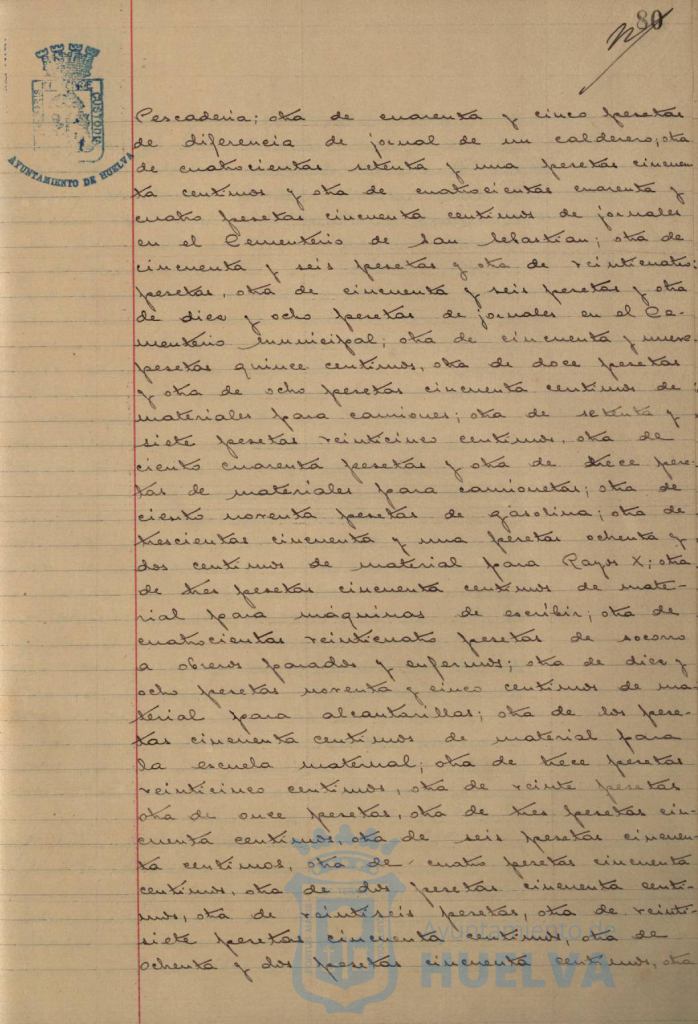 80
AYUNTAMIENTO DE HUELVA
Pescaderia; otra de cuarenta y cinco pesetas
de diferencia de jornal de un calderero; otra
de cuatrocientas setenta y una pesetas cincuen
ta centimos y otra de cuatrocientas cuarenta y
cuatro pesetas cincuenta centimos de jornales
en el Cementerio de San Sebastian; otra de
cincuenta y seis pesetas y otra de veinticuatro
pesetas, otra de cincuenta y seis pesetas y otra
de diez y ocho pesetas de jornales en el Ce-
menterio municipal; otra de cincuenta y nueve
pesetas quince centimos, otra de doce pesetas
y otra de ocho pesetas cincuenta centimos de
materiales para camiones; otra de setenta y
siete pesetas veinticinco centimos, otra de
ciento cuarenta pesetas y otra de trece pese-
tas de materiales para camionetas; otra de
ciento noventa pesetas de gasolina; otra de
trescientas cincuenta y una pesetas ochenta y
dos centimos de material para Rayos X; otra
de tres pesetas cincuenta centimos de mate-
rial para máquinas de escribir; otra de
cuatrocientas veinticuatro pesetas de socorro
a obreros parados y enfermos; otra de diez y
ocho pesetas noventa y cinco centimos de ma
terial para alcantarillas; otra de los pese-
tas cincuenta centimos de material para
la escuela maternal; otra de trece pesetas
veinticinco centimos, otra de veinte pesetas
otra de once pesetas, otra de tres pesetas cin-
cuenta centimos, otra de seis pesetas cincuen
ta centimos, otra de cuatro pesetas cincuenta
centimos, otra de dos pesetas cincuenta centi-
mos, otra de veintiseis pesetas, otra de veinti-
siete pesetas cincuenta centimos, otra de
ochenta y dos pesetas cincuenta centimos, otra
Ayuntamiento de
HUELVA